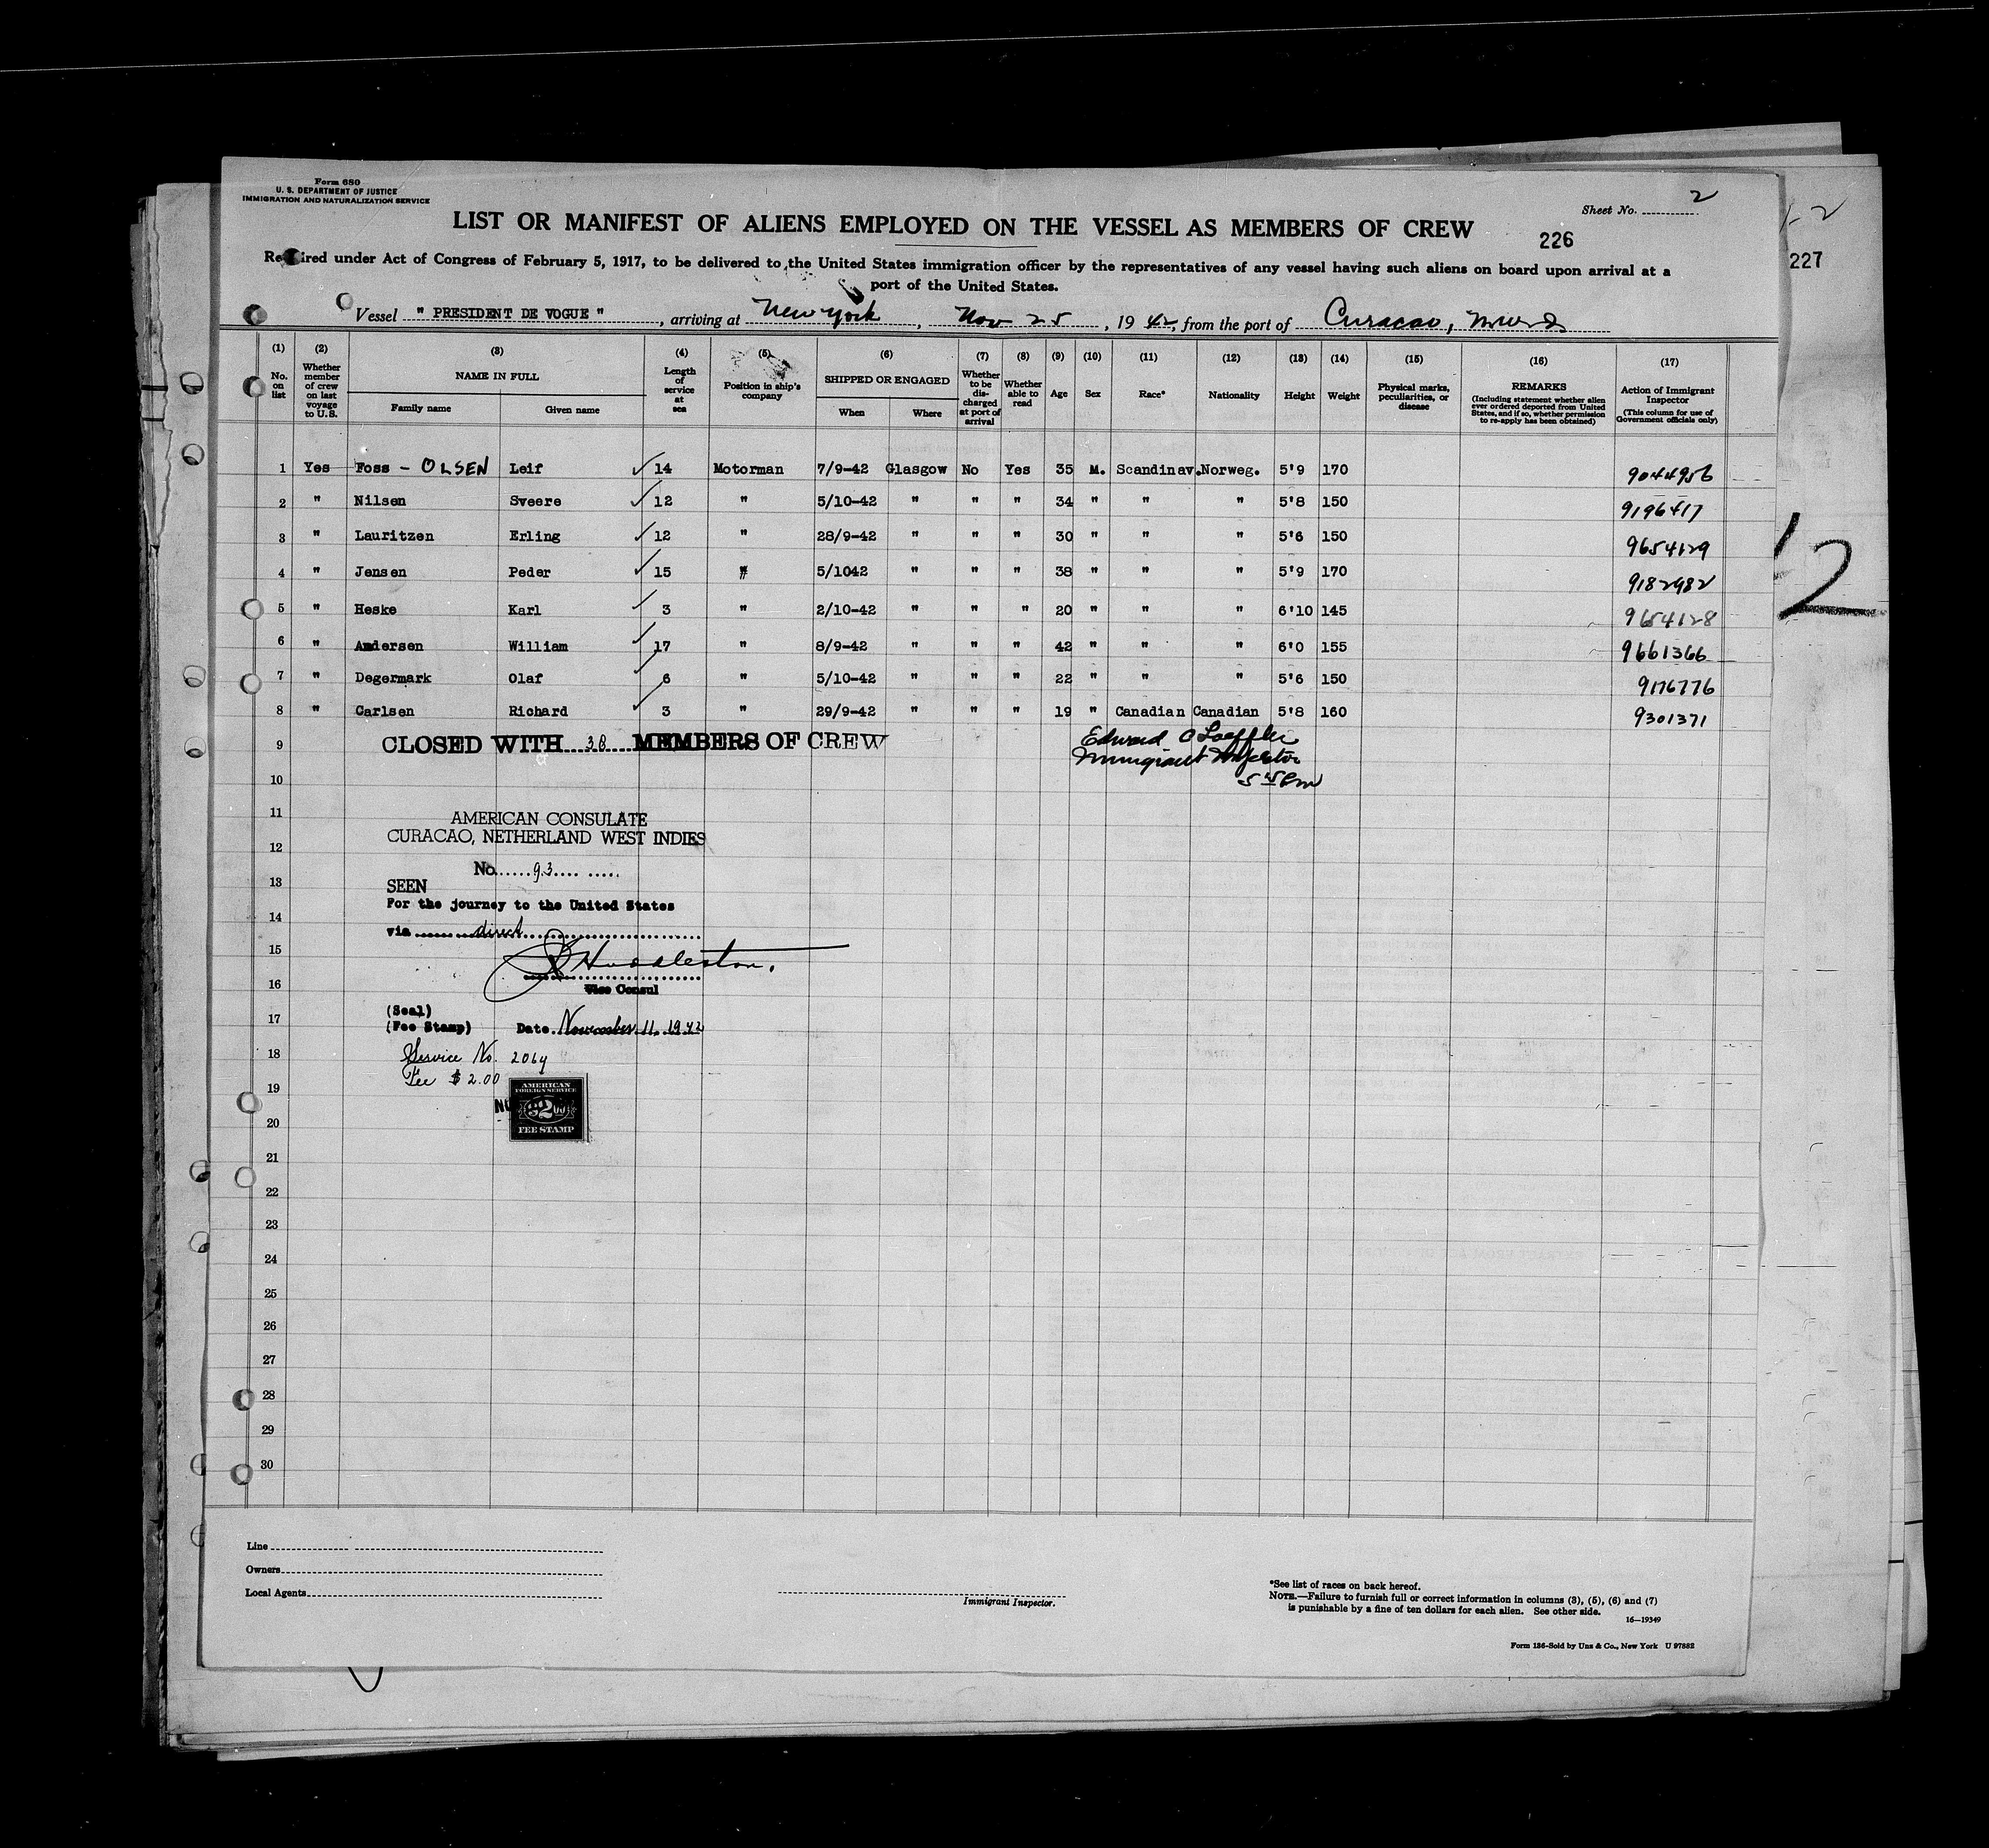 Form 680
U. S. DEPARTMENT OF JUSTICE
IMMIGRATION AND NATURALIZATION SERVICE
Sheet No. 2
LIST OR MANIFEST OF ALIENS EMPLOYED ON THE VESSEL AS MEMBERS OF CREW
226
227
Required under Act of Congress of February 5, 1917, to be delivered to the United States immigration officer by the representatives of any vessel having such aliens on board upon arrival at a
port of the United States.
Vessel " PRESIDENT DE VOGUE ", arriving at New York, Nov 25, 1942, from the port of Curacao,
(1) No. on list
(2) Whether member of crew on last voyage to U.S.
(3) NAME IN FULL Family name Given name
(4) Length of service at sea
(5) Position in ship's company
(6) SHIPPED OR ENGAGED When Where
(7) Whether to be discharged at port of arrival
(8) Whether able to read
(9) Age
(10) Sex
(11) Race*
(12) Nationality
(13) Height
(14) Weight
(15) Physical marks, peculiarities, or disease
(16) REMARKS (Including statement whether alien ever ordered deported from United States, and if so, whether permission to re-apply has been obtained)
(17) Action of Immigrant Inspector (This column for use of Government officials only)
1 Yes Foss - OLSEN Leif ✓ 14 Motorman 7/9-42 Glasgow No Yes 35 M. Scandinav. Norweg. 5'9 170 9044956
2 " Nilsen Sveere ✓ 12 " 5/10-42 " " " 34 " " " 5'8 150 9196417
3 " Lauritzen Erling ✓ 12 " 28/9-42 " " " 30 " " " 5'6 150 9654129
4 " Jensen Peder ✓ 15 " 5/1042 " " " 38 " " " 5'9 170 9182982
5 " Heske Karl ✓ 3 " 2/10-42 " " " 20 " " " 6'10 145 9654128
6 " Andersen William ✓ 17 " 8/9-42 " " " 42 " " " 6'0 155 9661366
7 " Degermark Olaf ✓ 6 " 5/10-42 " " " 22 " " " 5'6 150 9176776
8 " Carlsen Richard ✓ 3 " 29/9-42 " " " 19 " Canadian Canadian 5'8 160 9301371
9 CLOSED WITH 38 MEMBERS OF CREW
Edward C Loeffler
Immigrant Inspector
10
11
AMERICAN CONSULATE
CURACAO, NETHERLAND WEST INDIES
12
No. 93
13
SEEN
For the journey to the United States
14
via direct
15
Huddleston.
16
Vice Consul
(Seal)
17
(Fee Stamp) Date November 11, 1942
18
Service No. 2064
Fee $ 2.00
19
AMERICAN
FOREIGN SERVICE
2
FEE STAMP
20
21
22
23
24
25
26
27
28
29
30
Line
Owners
Local Agents
Immigrant Inspector.
*See list of races on back hereof.
NOTE.—Failure to furnish full or correct information in columns (3), (5), (6) and (7)
is punishable by a fine of ten dollars for each alien. See other side.
16—19349
Form 186-Sold by Unz & Co., New York U 97882